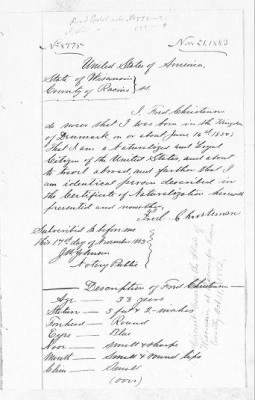 No 8775
Nov 21, 1883
United States of America,
State of Wisconsin
County of Racine } SS.
I, Fred Christensen
do swear that I was born in the Kingdom
of Denmark, on or about June 16th 1850;
That I am a Naturalized and Loyal
Citizen of the United States, and about
to travel abroad, and further that I
am identical person described in
the Certificate of Naturalization herewith
presented and
Fred Christensen
Subscribed to before me
this 17th day of November 1883
Notary Public
Description of Fred Christensen
Age — 33 years
Stature — 5 feet 2 inches
Forehead — Round
Eyes — Blue
Nose — Small & sharp
Mouth — Small & round lips
Chin — Small
(over)